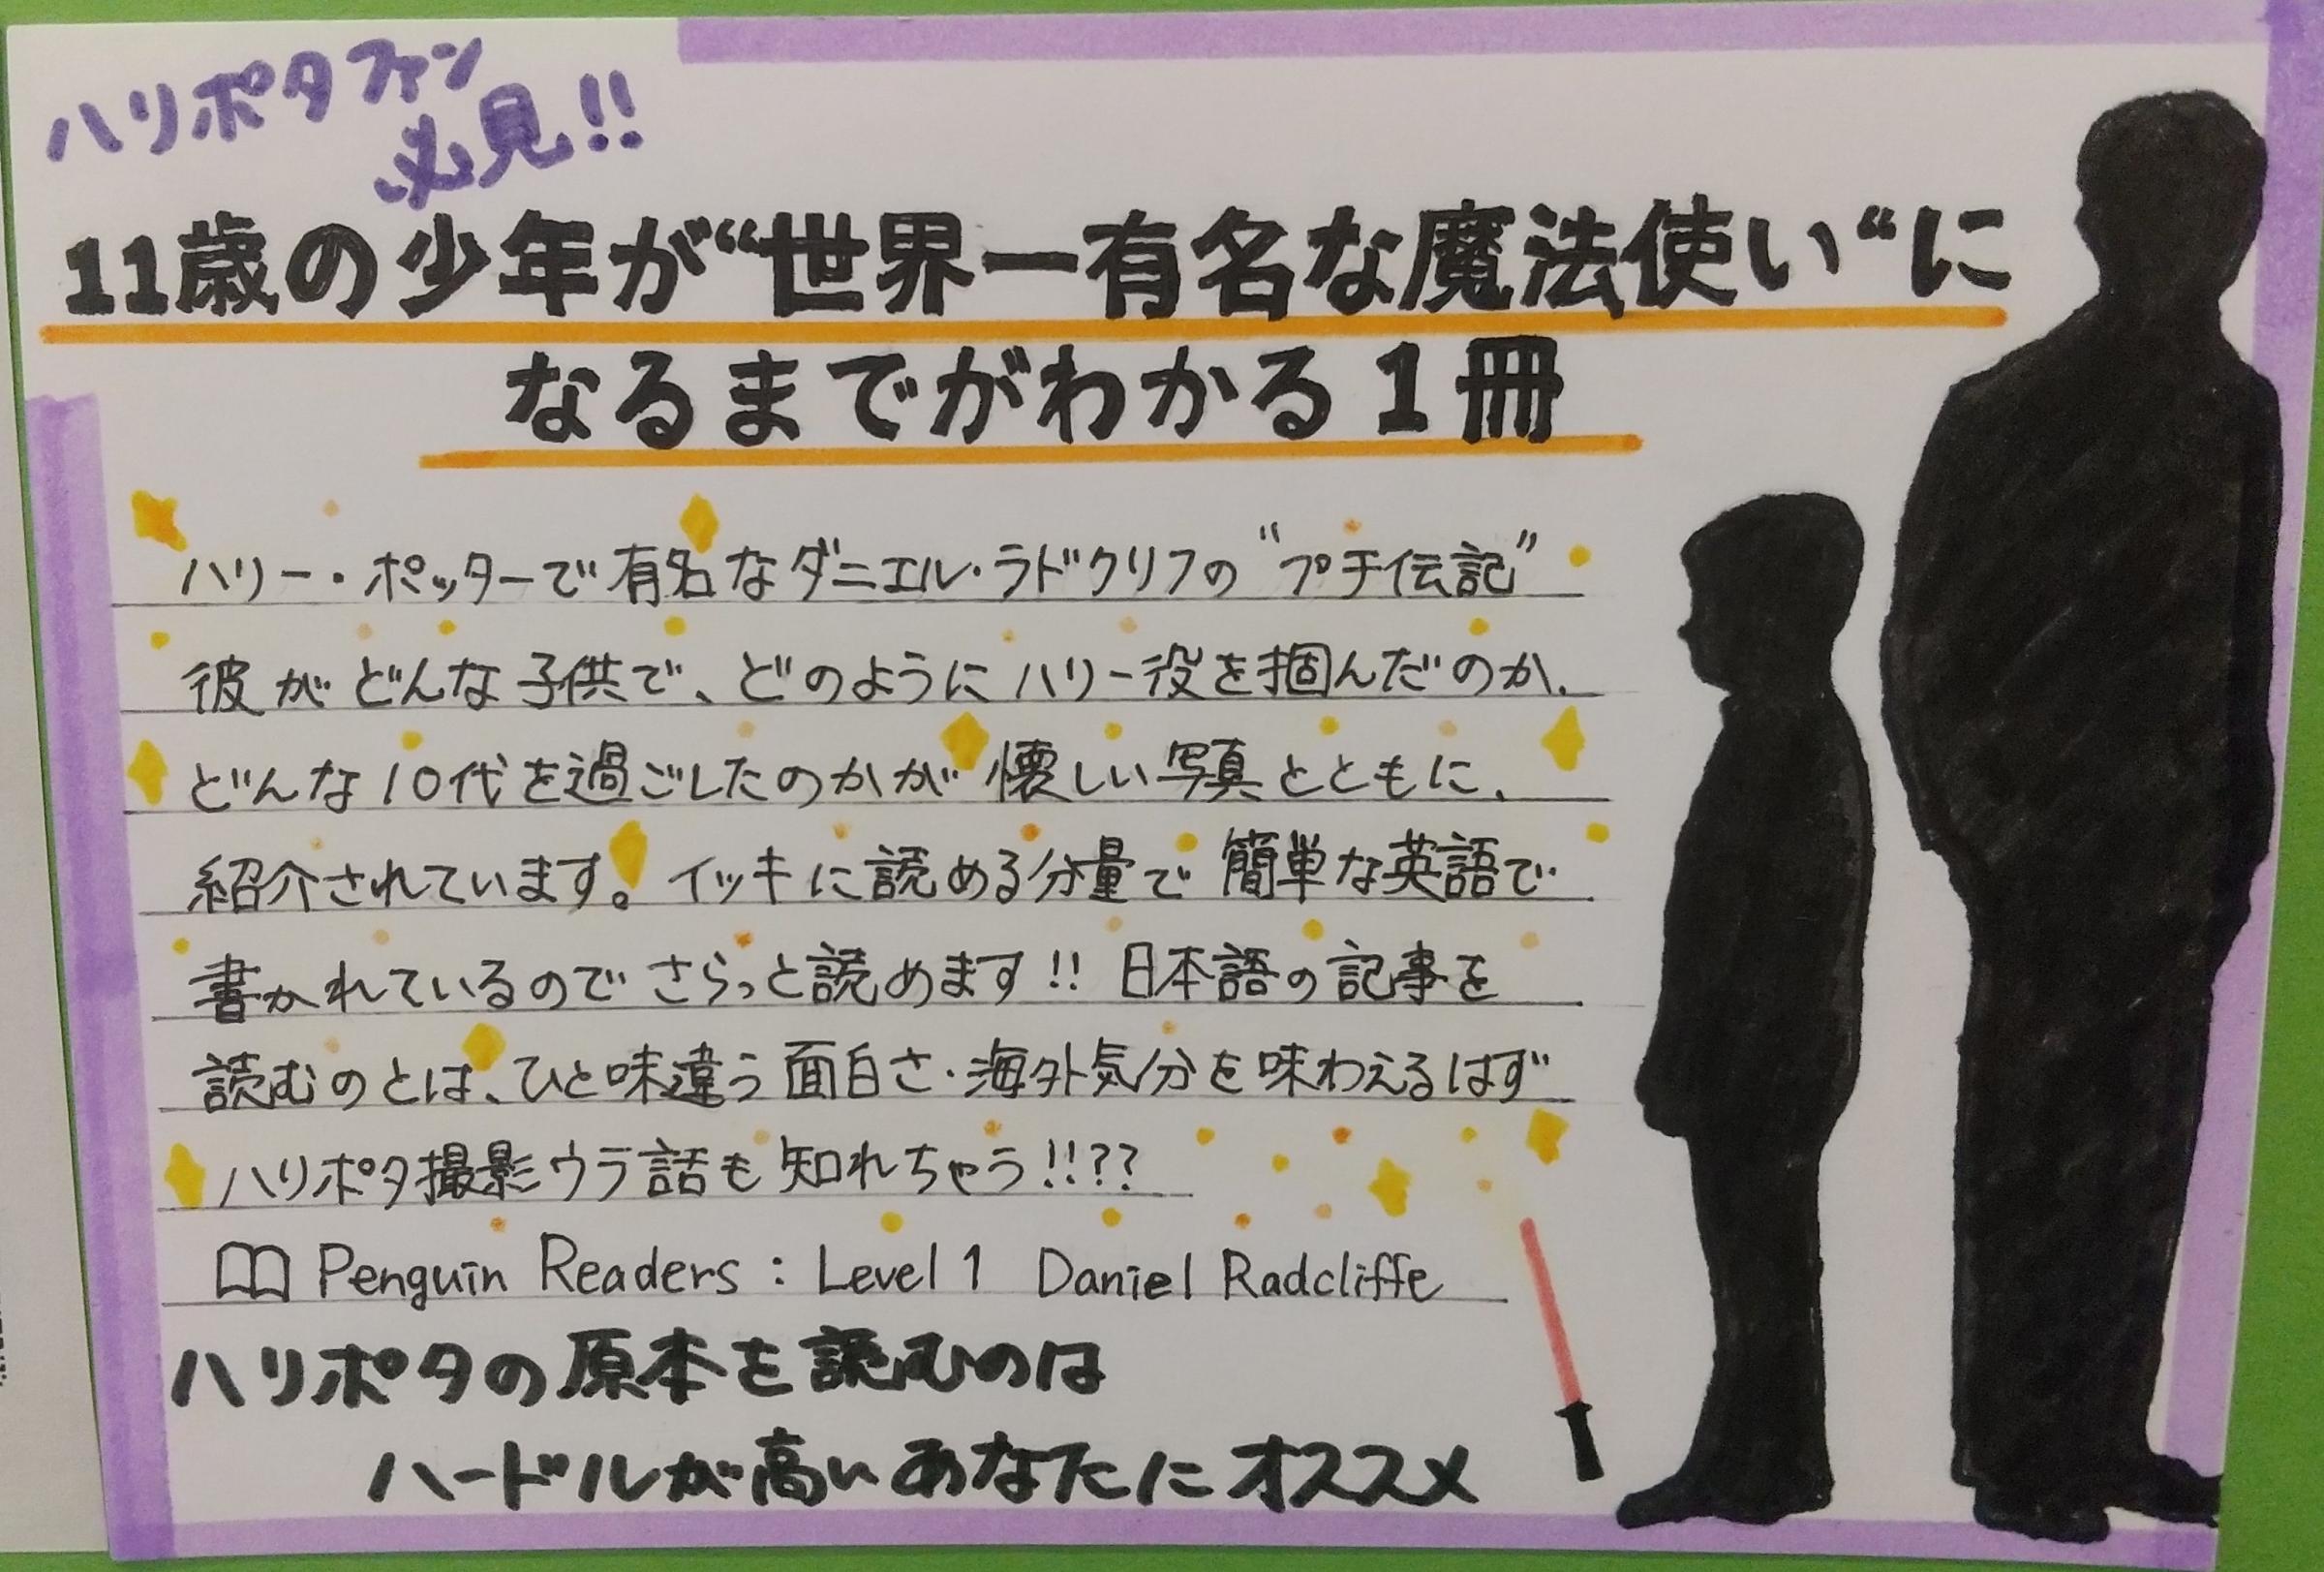 ハリポタファン
必見!!
11歳の少年が“世界一有名な魔法使い“に
なるまでがわかる1冊
ハリー・ポッターで有名なダニエル・ラドクリフの“プチ伝記”
彼がどんな子供で、どのようにハリー役を掴んだのか、
どんな10代を過ごしたのかが懐しい写真とともに、
紹介されています。イッキに読める分量で簡単な英語で
書かれているのでさらっと読めます!! 日本語の記事を
読むのとは、ひと味違う面白さ・海外気分を味わえるはず
ハリポタ撮影ウラ話も知れちゃう!!??
Penguin Readers : Level 1 Daniel Radcliffe
ハリポタの原本を読むのは
ハードルが高いあなたにオススメ